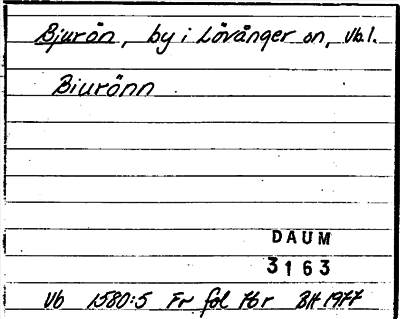 Bjurön, by i Lövånger sn, Vb.l.
Biurönn
DAUM
3163
Vb 1580:5 Fr fol 76 r BH 1977